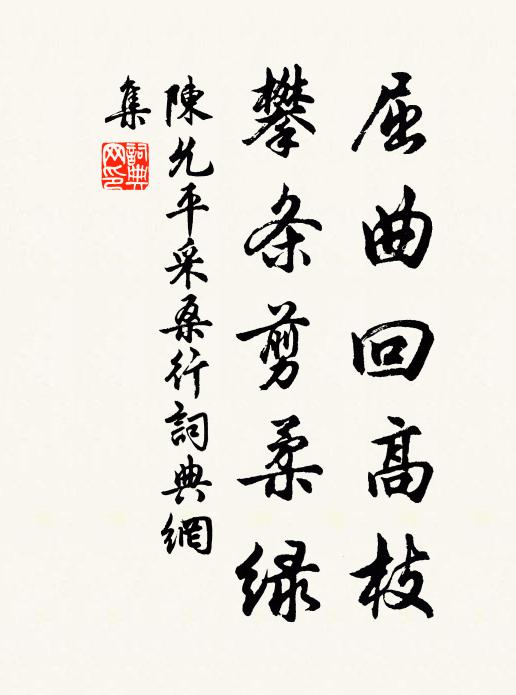 屈曲回高枝
攀条剪柔緑
陳允平采桑行詞典網
集
詞典网印